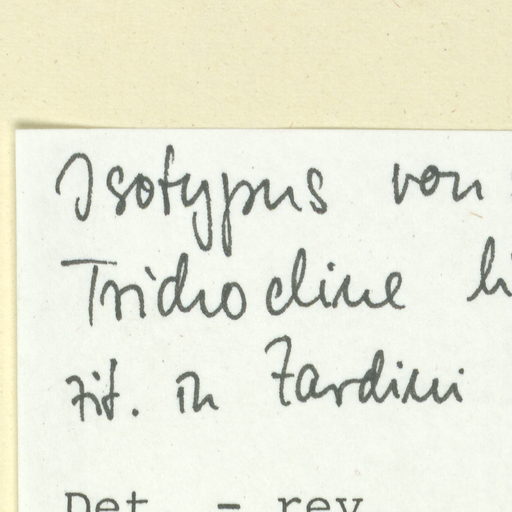 Isotypus von
Trichocline
zit. in Zardini
Det. - rev.